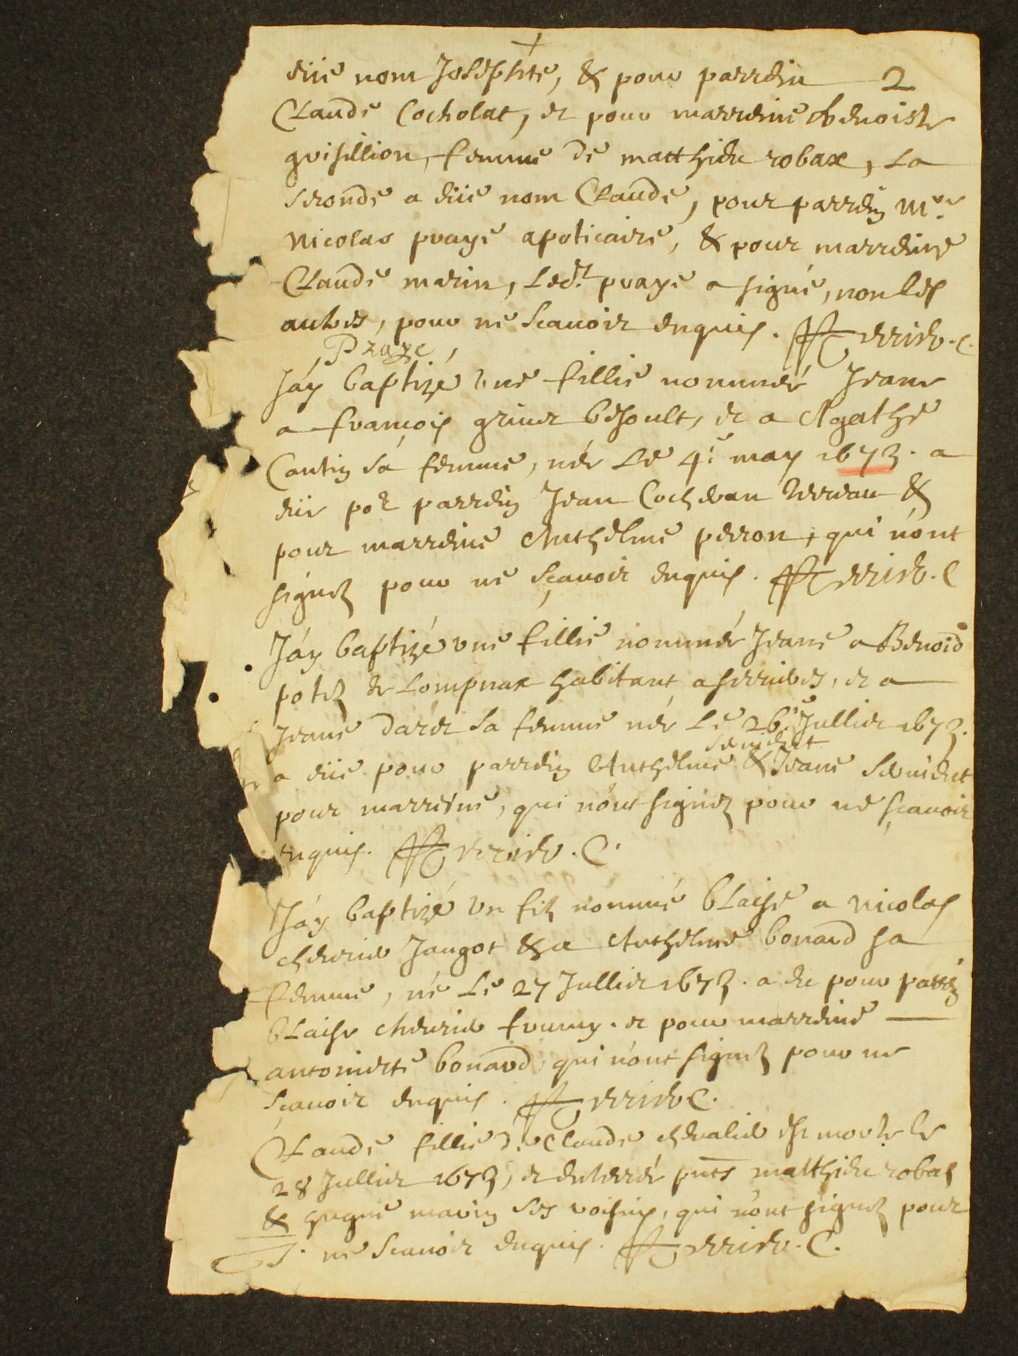 eüe nom Josephte, & pour parrein 2
Claude Cocholat, et pour marreine Benoiste
guisillion, femme de matthieu robax, La
seconde a eüe nom Claude, pour parrein Mre
Nicolas praye apoticaire, & pour marreine
Claude marin, Ledt praye a signé, non les
autres, pour ne scavoir enquis. ferrier. C.
Praye
Jáy baptizé une fillie nommée Jeane
a françois besoult, et a Agathe
Cantin sa femme, née Le 4e may 1673. a
eüe por parrein Jean & 
pour marreine Anthelme perron, qui n'ont
signez pour ne sçavoir enquis. ferrier. C
Jáy baptizé une fillie nommée Jeane a Benoid
potez de Lompnax habitant a, et a
Jeane sa femme née Le 26e Jullier 1673.
a eüe pour parrein Anthelme & Jeane
pour marreine, qui n'ont signez pour ne sçavoir
enquis. ferrier. C.
Jáy baptizé un filz nommé blaise a Nicolas
Jangot & a Anthelme bonard sa
femme, né Le 27 Jullier 1673. a eu pour parrein
blaise et pour marreine
antoinette bonard qui n'ont signez pour ne
sçavoir enquis. ferrier C.
Claude fillie de Claude chevalier est morte le
28 Jullier 1673, et enterrée pnts matthieu robax
& marin ses voisins, qui n'ont signez pour
ne scavoir enquis. ferrier. C.